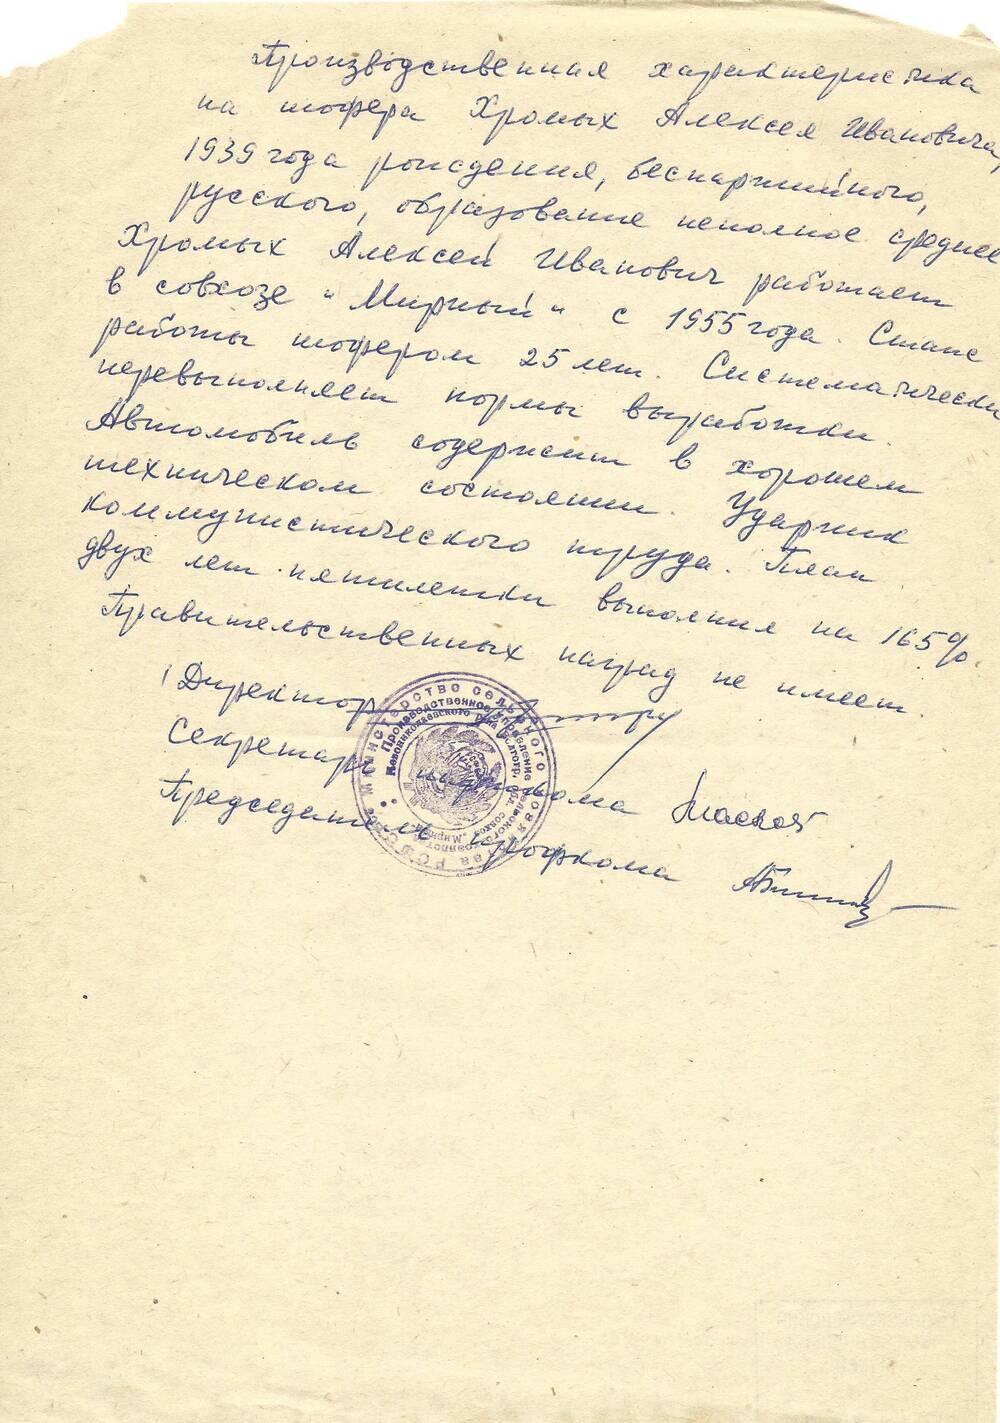 Производственная характеристика
на шофера Хромых Алексея Ивановича,
1939 года рождения, беспартийного,
русского, образование неполное среднее
Хромых Алексей Иванович работает
в совхозе "Мирный" с 1955 года. Стаж
работы шофером 25 лет. Систематически
перевыполняет нормы выработки.
Автомобиль содержит в хорошем
техническом состоянии. Ударник
коммунистического труда. План
двух лет пятилетки выполнил на 165%.
Правительственных наград не имеет.
Директор
Секретарь парткома
Председатель профкома
Министерство сельского хозяйства РСФСР
Производственное управление сельского хозяйства
Новониколаевского р-на Волгогр. обл.
совхоз "Мирный"